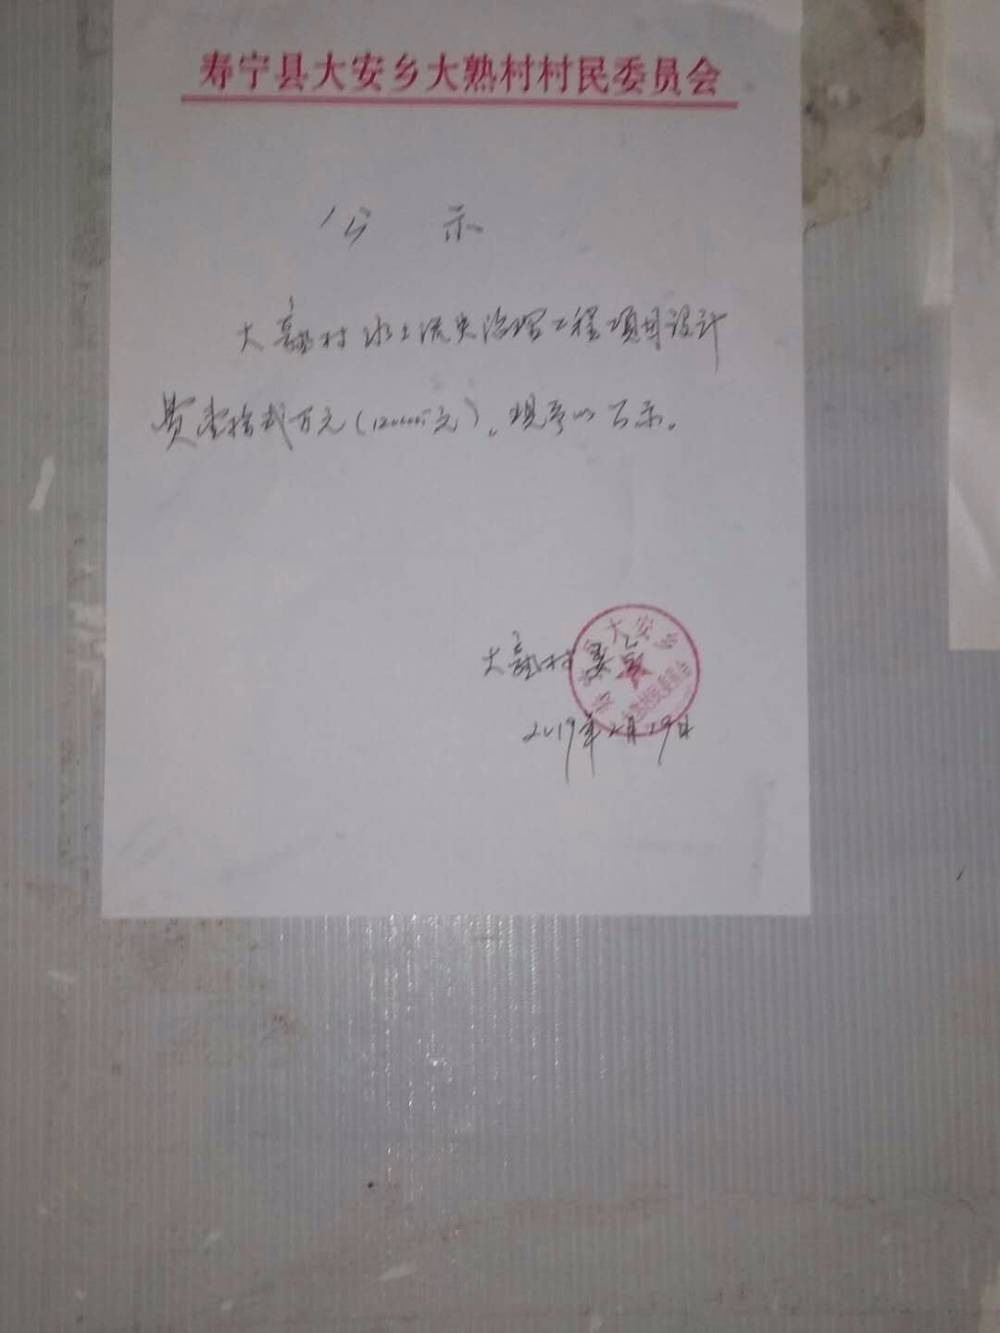 寿宁县大安乡大熟村村民委员会
公 示
大熟村水土流失治理工程项目设计
费壹拾贰万元(120000元)，现予以公示。
大熟村委会
大安乡
2019年2月29日